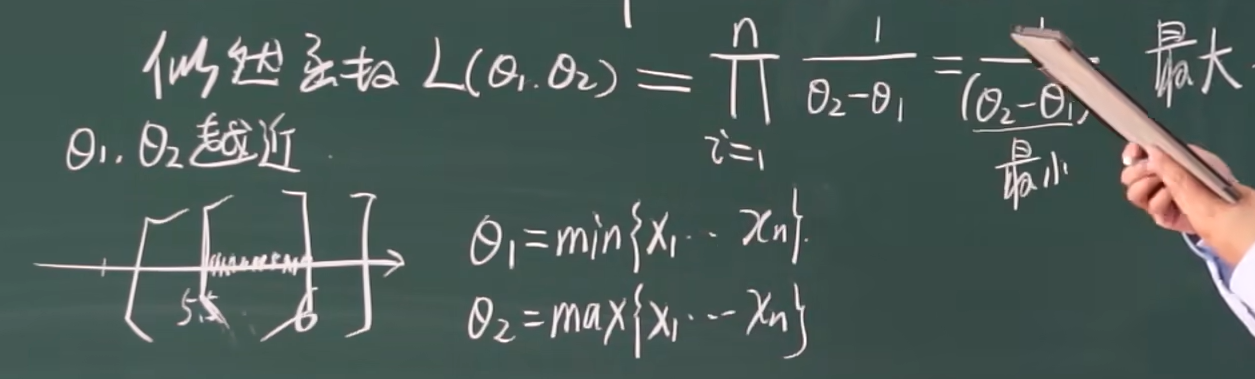 似然函数 L(θ₁.θ₂) = ∏ᵢ₌₁ⁿ 1/(θ₂-θ₁) = 1/(θ₂-θ₁) 最大
θ₁.θ₂越近
最小
θ₁=min{x₁⋯xₙ}.
5.5 6
θ₂=max{x₁⋯xₙ}